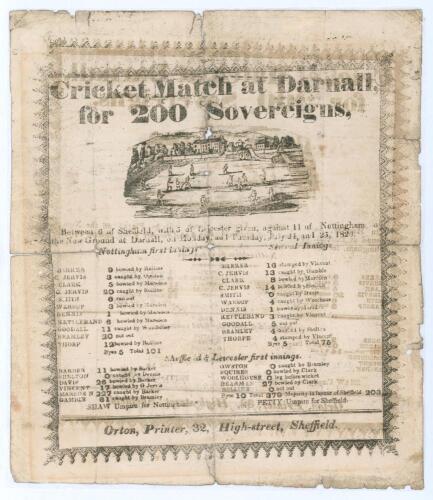 Cricket Match at Darnall,
for 200 Sovereigns,
Between 6 of Sheffield, with 5 of Leicester given, against 11 of Nottingham
the New Ground at Darnall, on Monday, and Tuesday, July 24, and 25,
Nottingham first innings Second Innings
BARKER 9 bowled by 16 stumped by Vincent
JERVIS 3 caught by C. JERVIS 13 caught by Gamble
CLARK 5 bowled by Marsden CLARK 8 bowled by Marsden
G. JARVIS 20 caught by G. JERVIS 14 bowled by
SMITH 6 run out SMITH 0 caught by
WARSOP 3 bowled by WARSOP 4 caught by
DENNIS 1 bowled by Marsden DENNIS 1
KETTLEBAND 6 bowled by Marsden KETTLEBAND 3 caught by Vincent
GOODALL 11 caught by Woolhouse GOODALL 5 not out
BRAMLEY 20 not out BRAMLEY 4
THORP 12 bowled by THORPE 4 stumped by Vincent
Byes 5 Total 101 Byes 5 Total 75
Sheffield & Leicester first innings.
BARBER 11 bowled by Barker OWSTON 0 caught by Bramley
0 caught by Dennis SQUIRES 0 bowled by Clark
DAVIS 26 bowled by Barker WOOLHOUSE 0 leg before wicket
VINCENT 17 bowled by G. Jervis 27 bowled by Clark
MARSDEN 227 caught by Barker 0 not out
GAMBLE 61 caught by Bramley Byes 10 Total 379 Majority in favour of Sheffield 203
SHAW Umpire for Nottingham PETTY Umpire for Sheffield
Orton, Printer, 32, High-street, Sheffield.